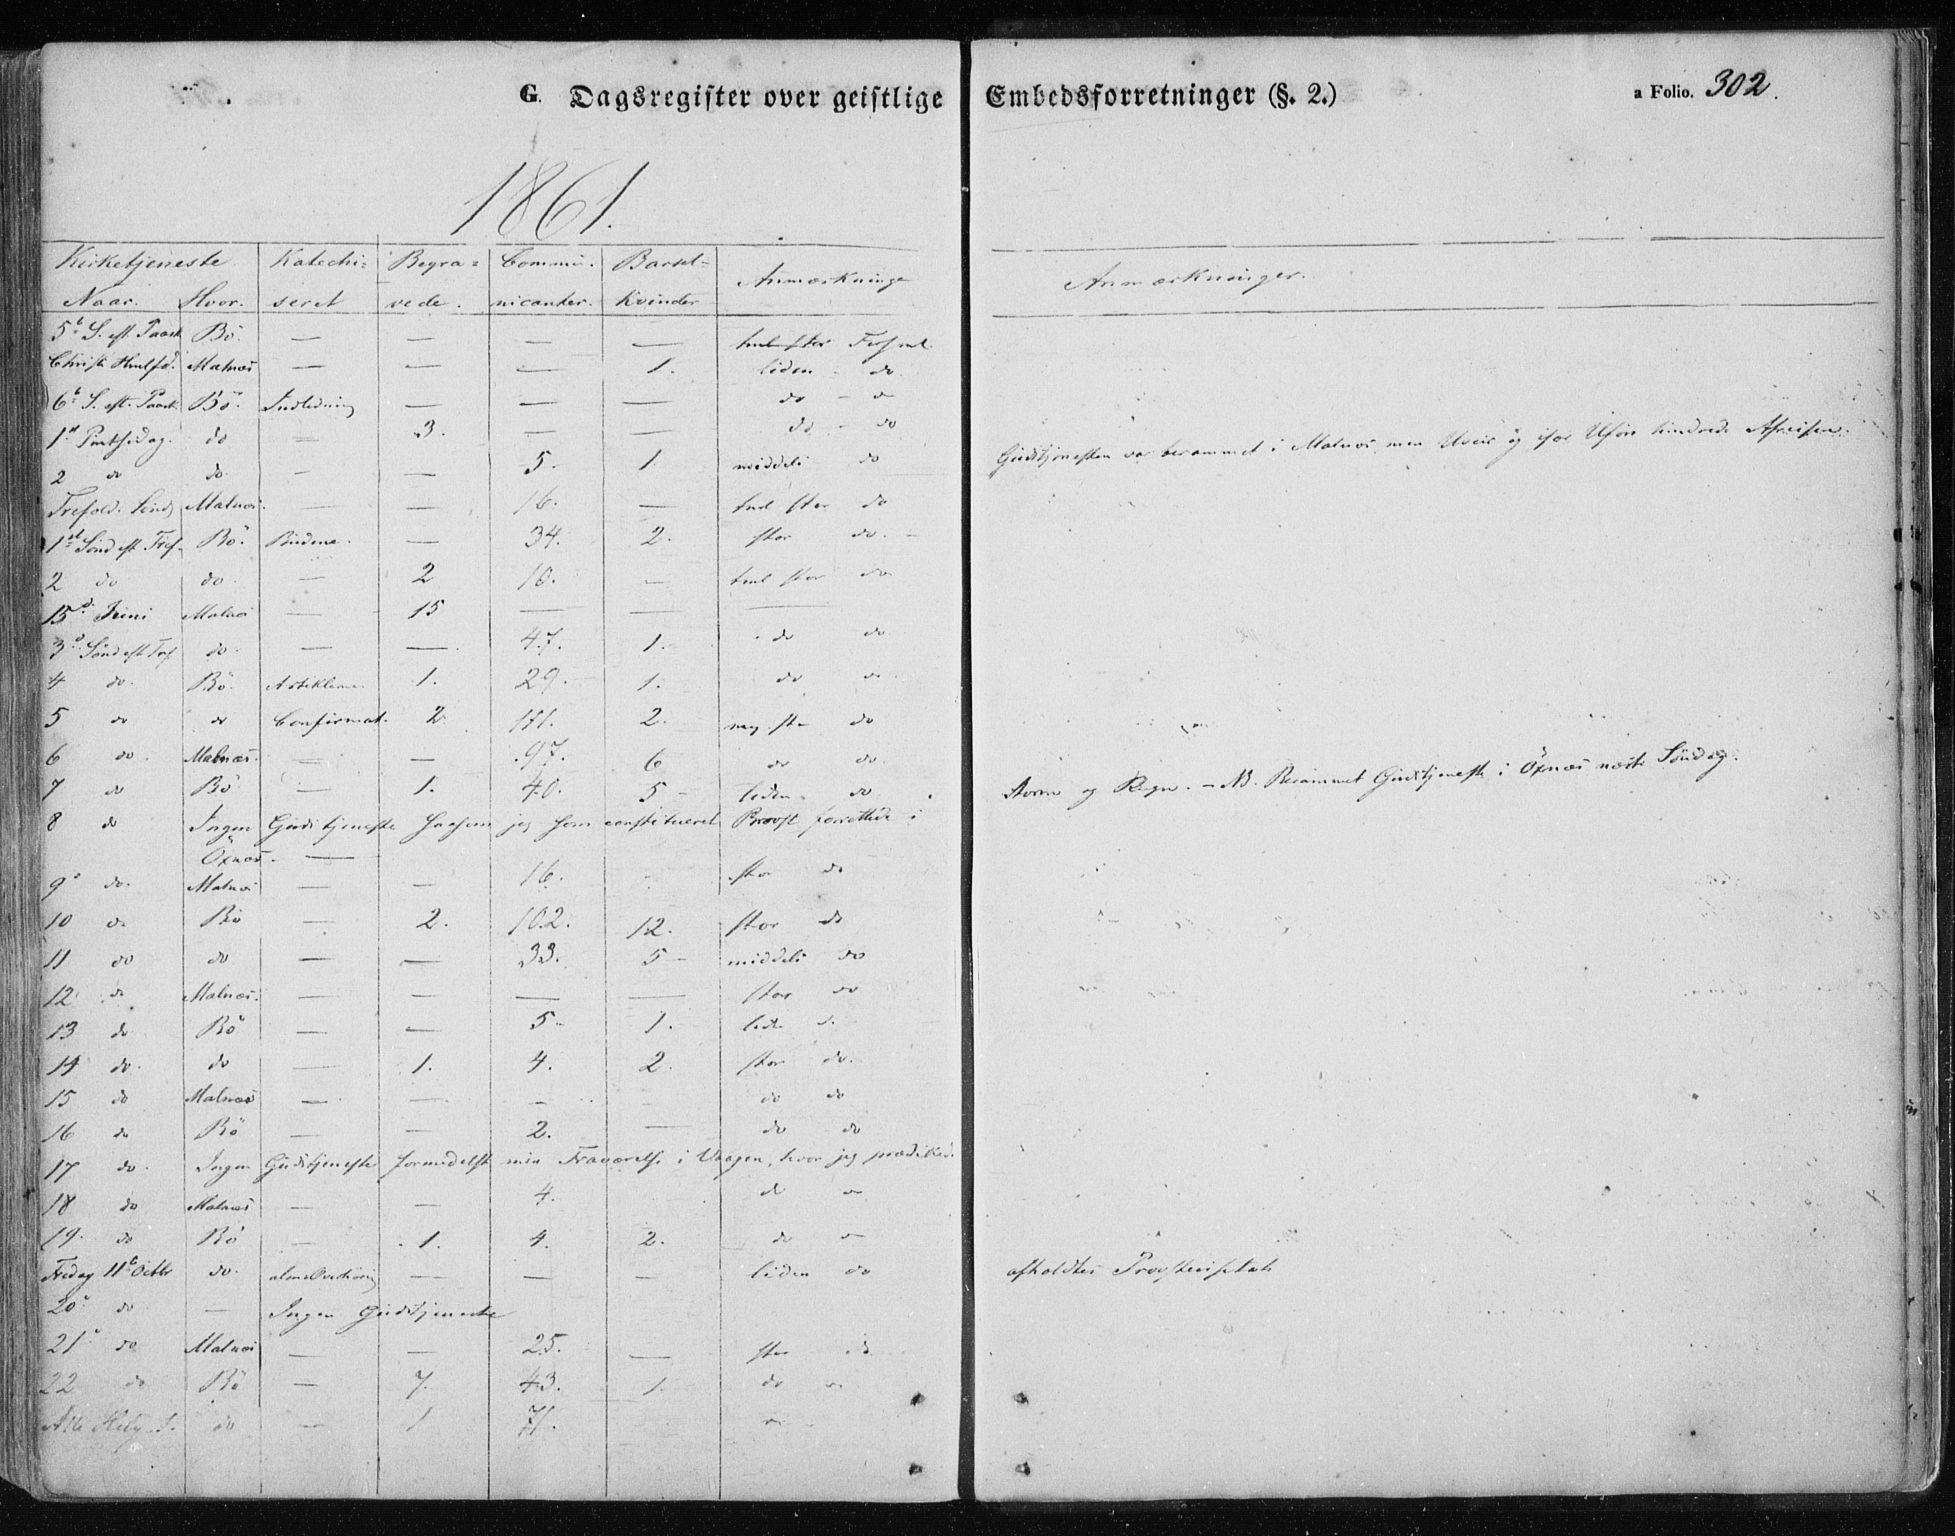 G. Dagsregister over geistlige Embedsforretninger (§. 2.) a Folio. 302.
1861.
Kirketjeneste. Katechi= Begra= Commu- Barsel= Anmærkninge Anmærkninger.
Naar. Hvor. seret vede. nicanter. Kvinder
5te S. eft. Paask Bö. — — — —
Christi Hmlfd. Malnæs — — — 1. liden - do.
6te S. eft. Paask Bö. Indledning — — — do - do
1st Pintsedag. do — 3. — — do - do Gudstjenesten var berammet i Malnæs men Uveir og især Uföre hindrede Afreisen.
2 do do. — — 5. 1. middels do
Trefold. Sönd Malnæs. — — 16. — do
1ste Sönd eft Tref. Bö. Budene. — 34. 2. stor do.
2 do do. — 2 10. — stor do
15de Juni Malnæs — 15 — — —
3die Sönd eft Tref do. — — 47. 1. do do
4 do. Bö. Artiklerne. 1. 29. 1. do do
5 do do Confirmat. 2. 171. 2. do
6 do. Malnæs. — — 97. 6 do do.
7 do Bö — 1. 40. 5 - liden. do Storm og Regn. - NB. Berammet Gudstjeneste i Öxnæs næste Söndag.
8 do Ingen Gudstjeneste saasom jeg som constitueret Provst forrettede i
Öxnæs. —
9de do. Malnæs — — 16. - stor do
10 do Bö — 2. 102. 12. stor do
11 do do — — 33. 5 - middels do
12 do Malnæs. — — — — stor do
13 do Bö — — 5 - 1. liden do
14 do. do — 1. 4. 2. stor do.
15 do Malnæs — — - - do do
16 do Bö — — 2. — do do
17 do. Ingen Gudstjeneste formedelst min Fraværelse i Vaagen, hvor jeg prædikede.
18 do Malnæs — — 4. do do
19. do Bö — 1. 4. 2. do do
Fredag 11te Octbr do. — — — liden do afholdtes
20de do — Ingen Gudstjeneste
21de do Malnæs — — 25. — stor do
22 do Bö — 7. 43. 1. do do
Alle Helg. S. do — 1 71. do